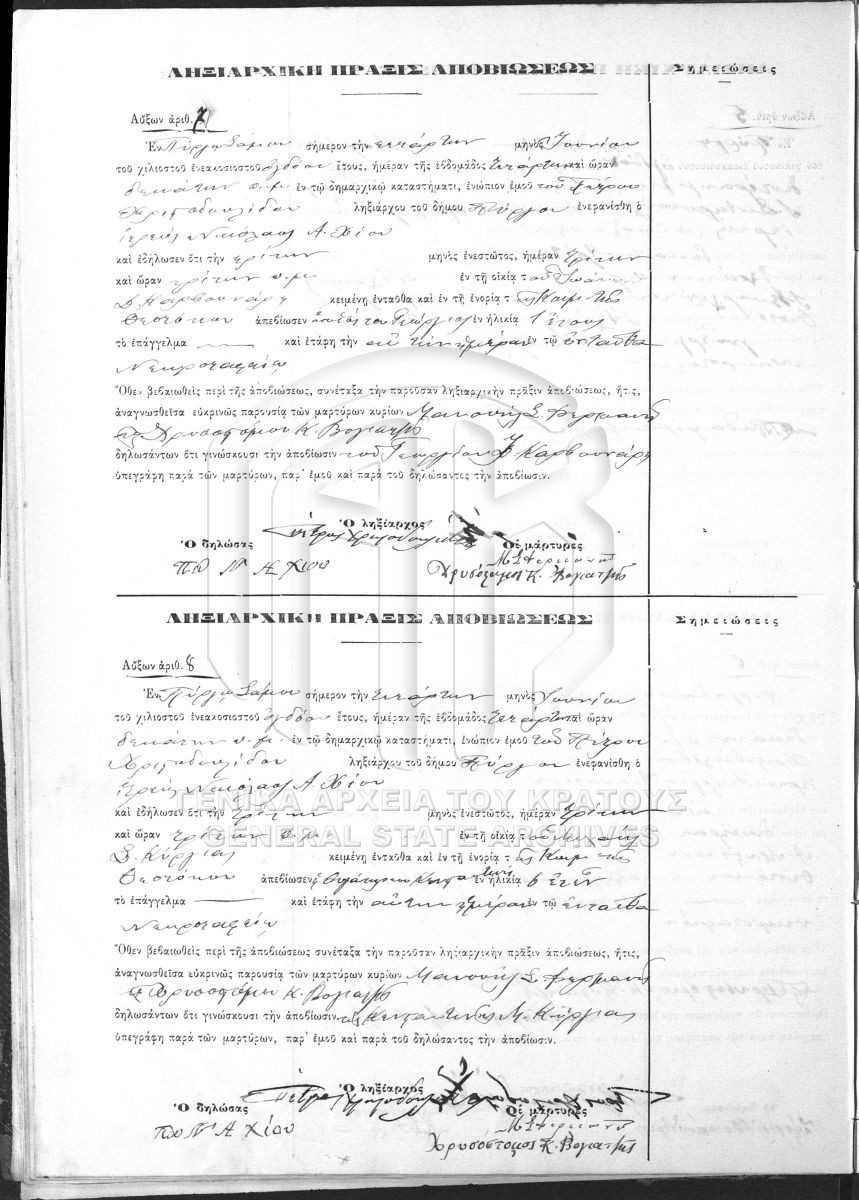 ΛΗΞΙΑΡΧΙΚΗ ΠΡΑΞΙΣ ΑΠΟΒΙΩΣΕΩΣ
Σημειώσεις
Αὔξων ἀριθ. 7
Ἐν Πύργῳ Σάμου σήμερον τὴν τετάρτην μηνὸς Ἰουνίου
τοῦ χιλιοστοῦ ἐνεακοσιοστοῦ ὀγδόου ἔτους, ἡμέραν τῆς ἑβδομάδος Τετάρτην καὶ ὥραν
δεκάτην π.μ. ἐν τῷ δημαρχικῷ καταστήματι, ἐνώπιον ἐμοῦ τοῦ Πέτρου
ληξιάρχου τοῦ δήμου Πύργου ἐνεφανίσθη ὁ
ἱερεὺς Νικόλαος Α. Χίου
καὶ ἐδήλωσεν ὅτι τὴν τρίτην μηνὸς ἐνεστῶτος, ἡμέραν Τρίτην
καὶ ὥραν τρίτην π.μ. ἐν τῇ οἰκίᾳ τοῦ Ἰωάν
Δ. Καρβουνάρη κειμένῃ ἐνταῦθα καὶ ἐν τῇ ἐνορίᾳ τῆς Κοιμ. τῆς
Θεοτόκου ἀπεβίωσεν ὁ υἱός του Γεώργιος ἐν ἡλικίᾳ 1 ἔτους
τὸ ἐπάγγελμα — καὶ ἐτάφη τὴν αὐτὴν ἡμέραν ἐν τῷ ἐνταῦθα
Νεκροταφείῳ
Ὅθεν βεβαιωθεὶς περὶ τῆς ἀποβιώσεως, συνέταξα τὴν παροῦσαν ληξιαρχικὴν πρᾶξιν ἀποβιώσεως, ἥτις,
ἀναγνωσθεῖσα εὐκρινῶς παρουσίᾳ τῶν μαρτύρων κυρίων Μανουὴλ Σ. Φερμανῆ
Χρυσοστόμου Κ. Βογιατζῆ
δηλωσάντων ὅτι γινώσκουσι τὴν ἀποβίωσιν τοῦ Γεωργίου Ι. Καρβουνάρη
ὑπεγράφη παρὰ τῶν μαρτύρων, παρ' ἐμοῦ καὶ παρὰ τοῦ δηλώσαντος τὴν ἀποβίωσιν.
Ὁ ληξίαρχος
Ὁ δηλώσας
Οἱ μάρτυρες
Ν Α Χίου
Χρυσόστομος Κ. Βογιατζῆς
ΛΗΞΙΑΡΧΙΚΗ ΠΡΑΞΙΣ ΑΠΟΒΙΩΣΕΩΣ
Σημειώσεις
Αὔξων ἀριθ. 8
Ἐν Πύργῳ Σάμου σήμερον τὴν τετάρτην μηνὸς Ἰουνίου
τοῦ χιλιοστοῦ ἐνεακοσιοστοῦ ὀγδόου ἔτους, ἡμέραν τῆς ἑβδομάδος Τετάρτην καὶ ὥραν
δεκάτην π.μ. ἐν τῷ δημαρχικῷ καταστήματι, ἐνώπιον ἐμοῦ τοῦ Πέτρου
ληξιάρχου τοῦ δήμου Πύργου ἐνεφανίσθη ὁ
ἱερεὺς Νικόλαος Α. Χίου
ΓΕΝΙΚΑ ΑΡΧΕΙΑ ΤΟΥ ΚΡΑΤΟΥΣ
GENERAL STATE ARCHIVES
καὶ ἐδήλωσεν ὅτι τὴν τρίτην μηνὸς ἐνεστῶτος, ἡμέραν Τρίτην
καὶ ὥραν τρίτην π.μ. ἐν τῇ οἰκίᾳ τοῦ
Σ. Κύργιας κειμένῃ ἐνταῦθα καὶ ἐν τῇ ἐνορίᾳ τῆς Κοιμ. τῆς
Θεοτόκου ἀπεβίωσεν ἡ ἐν ἡλικίᾳ 6 ἐτῶν
τὸ ἐπάγγελμα — καὶ ἐτάφη τὴν αὐτὴν ἡμέραν ἐν τῷ ἐνταῦθα
Νεκροταφείῳ
Ὅθεν βεβαιωθεὶς περὶ τῆς ἀποβιώσεως συνέταξα τὴν παροῦσαν ληξιαρχικὴν πρᾶξιν ἀποβιώσεως, ἥτις,
ἀναγνωσθεῖσα εὐκρινῶς παρουσίᾳ τῶν μαρτύρων κυρίων Μανουὴλ Σ. Φερμανῆ
Χρυσοστόμου Κ. Βογιατζῆ
δηλωσάντων ὅτι γινώσκουσι τὴν ἀποβίωσιν τῆς Μ. Κύργιας
ὑπεγράφη παρὰ τῶν μαρτύρων, παρ' ἐμοῦ καὶ παρὰ τοῦ δηλώσαντος τὴν ἀποβίωσιν.
Ὁ ληξίαρχος
Ὁ δηλώσας
Οἱ μάρτυρες
Ν Α Χίου
Χρυσόστομος Κ. Βογιατζῆς